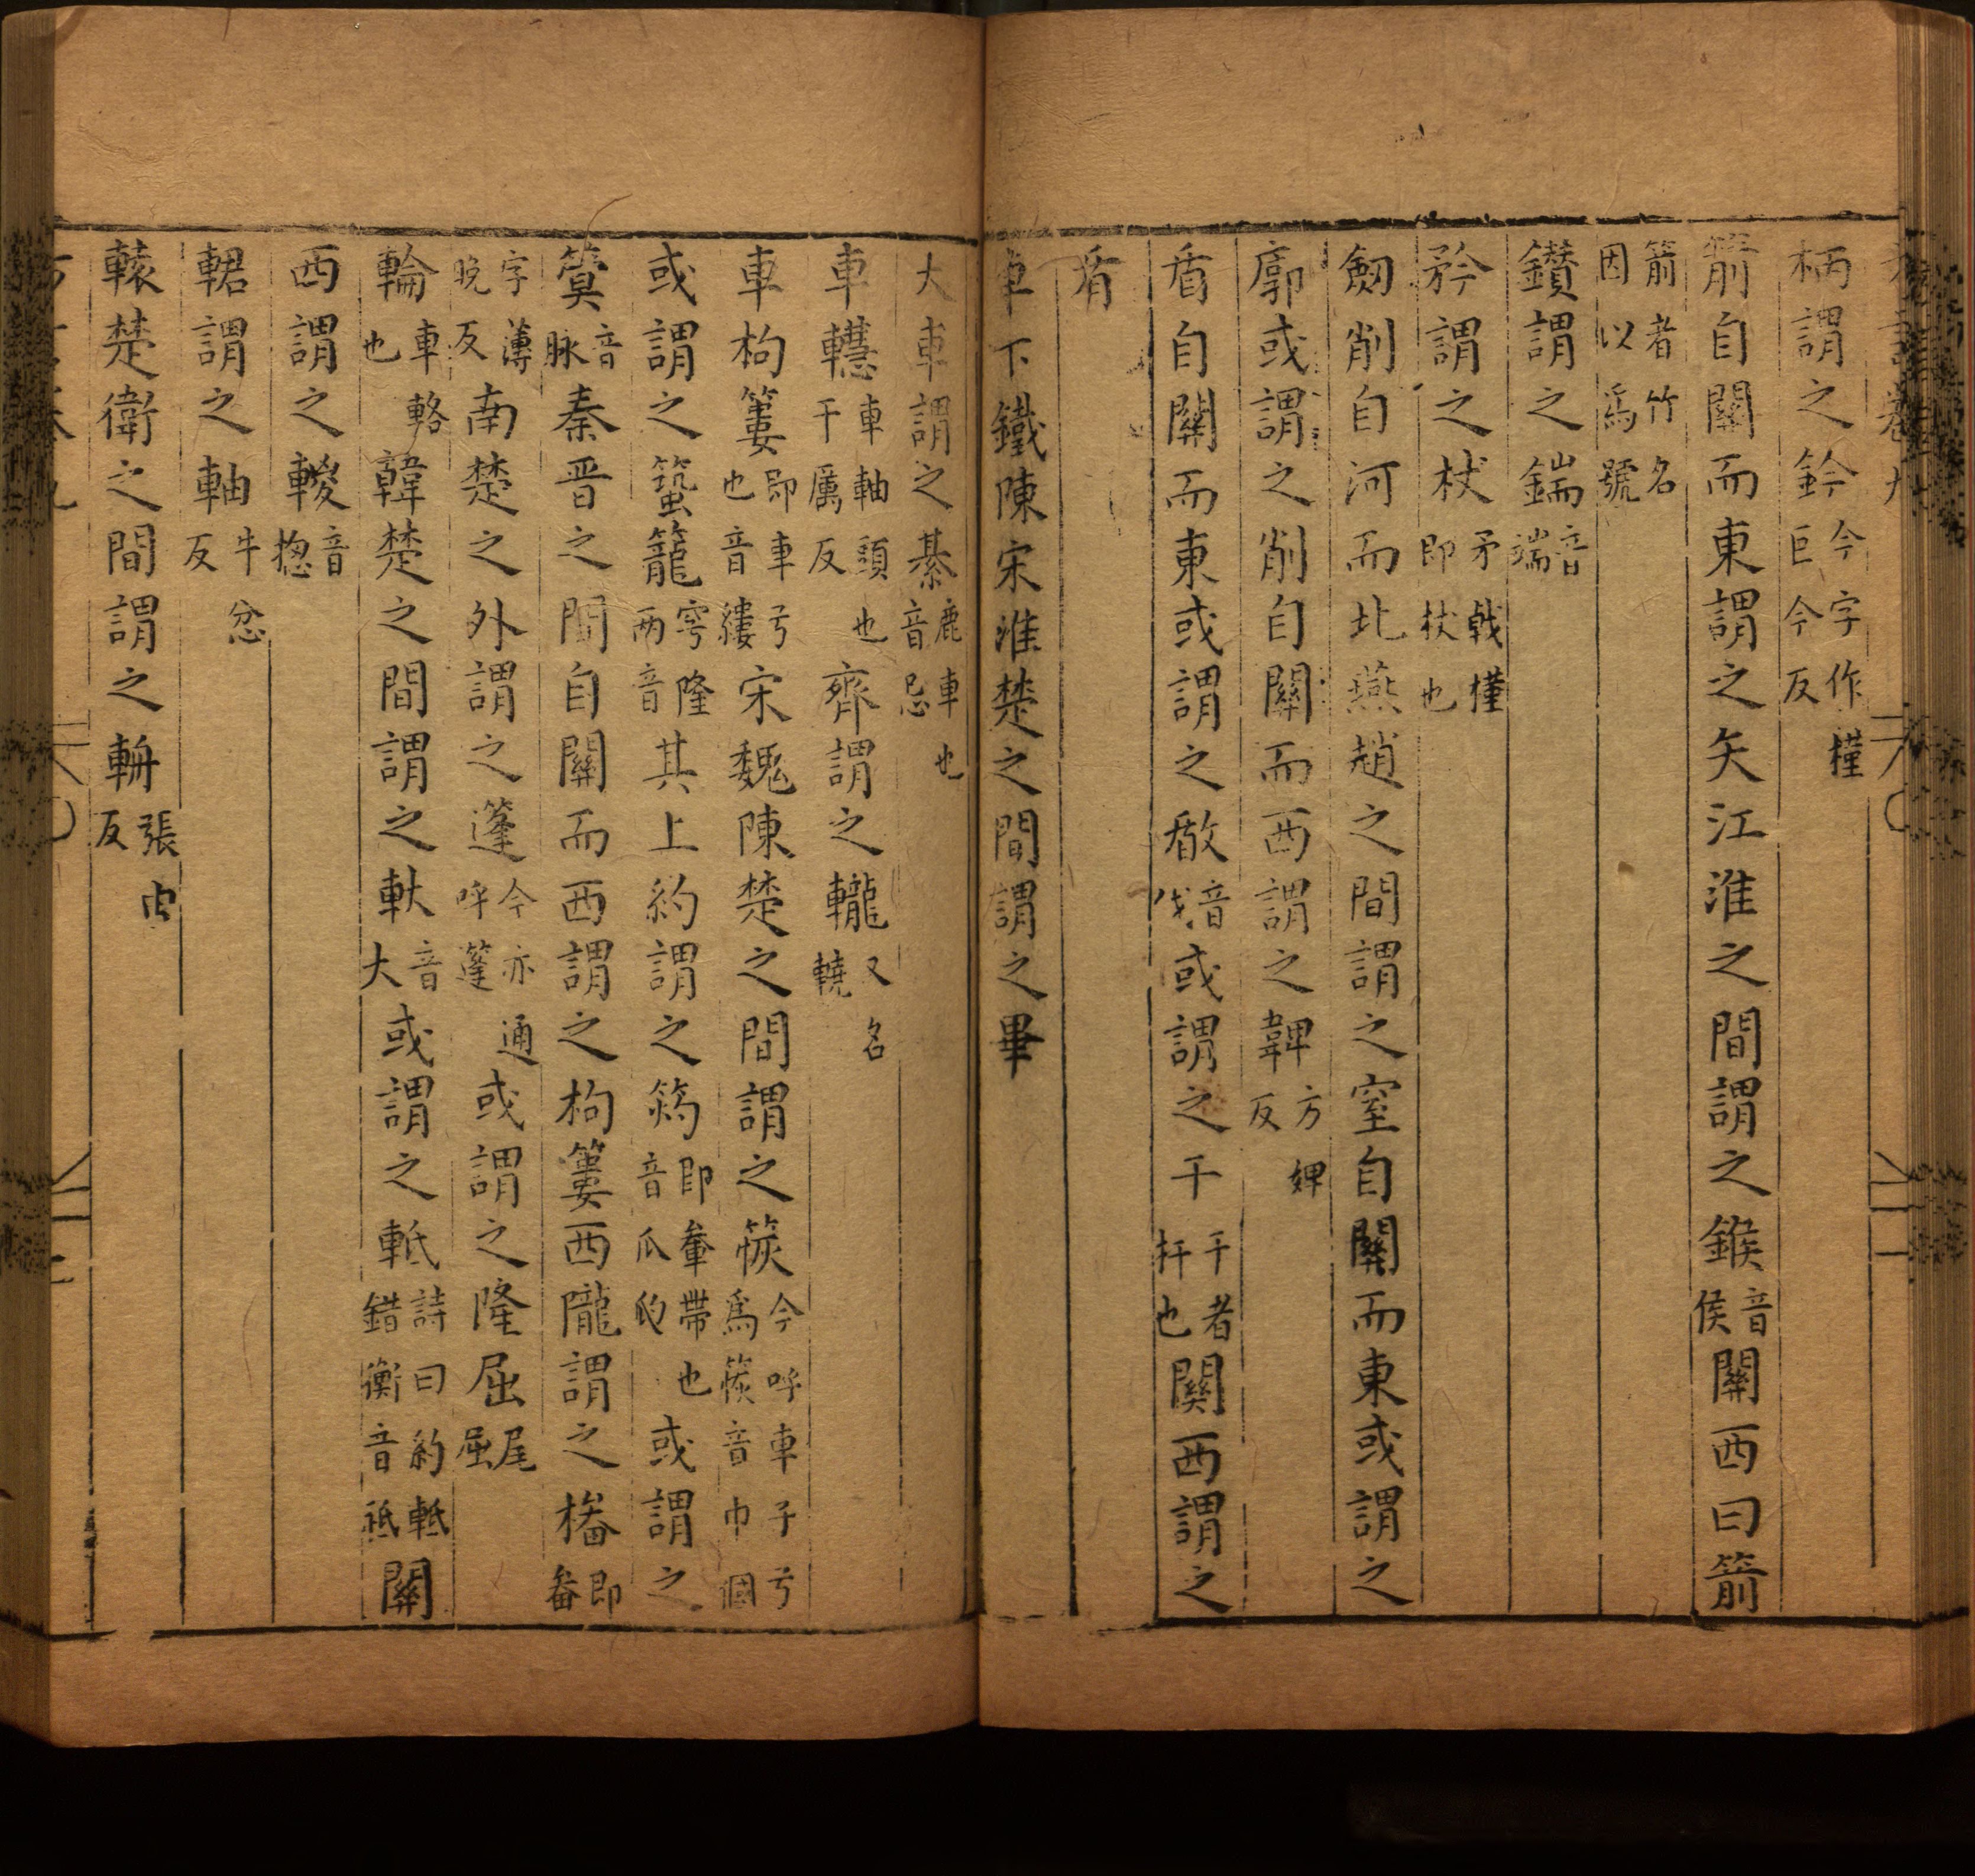 柄謂之鈐今字作槿巨今反
箭自關而東謂之矢江淮之間謂之鍭音侯關西曰箭
箭者竹名因以爲號
鑚謂之鍴音端
矜謂之杖矛戟槿即杖也
劒削自河而北燕趙之間謂之室自關而東或謂之
廓或謂之削自關而西謂之鞞方婢反
盾自關而東或謂之瞂音伐或謂之干干者扞也關西謂之
盾
車下鐵陳宋淮楚之間謂之畢
大車謂之綦鹿車也音忌
車轊車軸頭也于厲反齊謂之轆又名轐
車枸簍即車弓也音縷宋魏陳楚之間謂之筱今呼車子弓爲筱音巾幗
或謂之䈪籠穹隆兩音其上約謂之筠即軬帶也音瓜瓝或謂之
簂音脉秦晋之間自關而西謂之枸簍西隴謂之㮥即軬
字薄晚反南楚之外謂之篷今亦通呼篷或謂之隆屈尾屈
輪車輅也韓楚之間謂之軑音大或謂之軝詩曰約軝錯衡音祗關
西謂之輚音揔
輑謂之軸牛忿反
轅楚衛之間謂之輈張由反